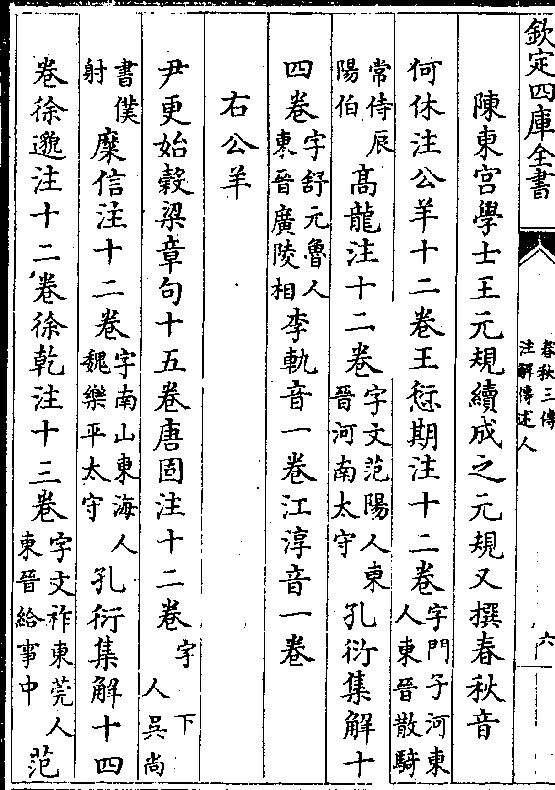 欽定四庫全書
春秋三傳
注解傳述人
六
陳東宮學士王元規續成之元規又撰春秋音
何休注公羊十二卷王愆期注十二卷字門子河東人東晉散騎
常侍辰陽伯髙龍注十二卷字文范陽人東晉河南太守孔衍集解十
四卷字舒元魯人東晉廣陵相李軌音一卷江淳音一卷
右公羊
尹更始糓梁章句十五卷唐固注十二卷字下人吳尚
書僕射糜信注十二卷字南山東海人魏樂平太守孔衍集解十四
卷徐邈注十二卷徐乾注十三卷字文祚東莞人東晉給事中范